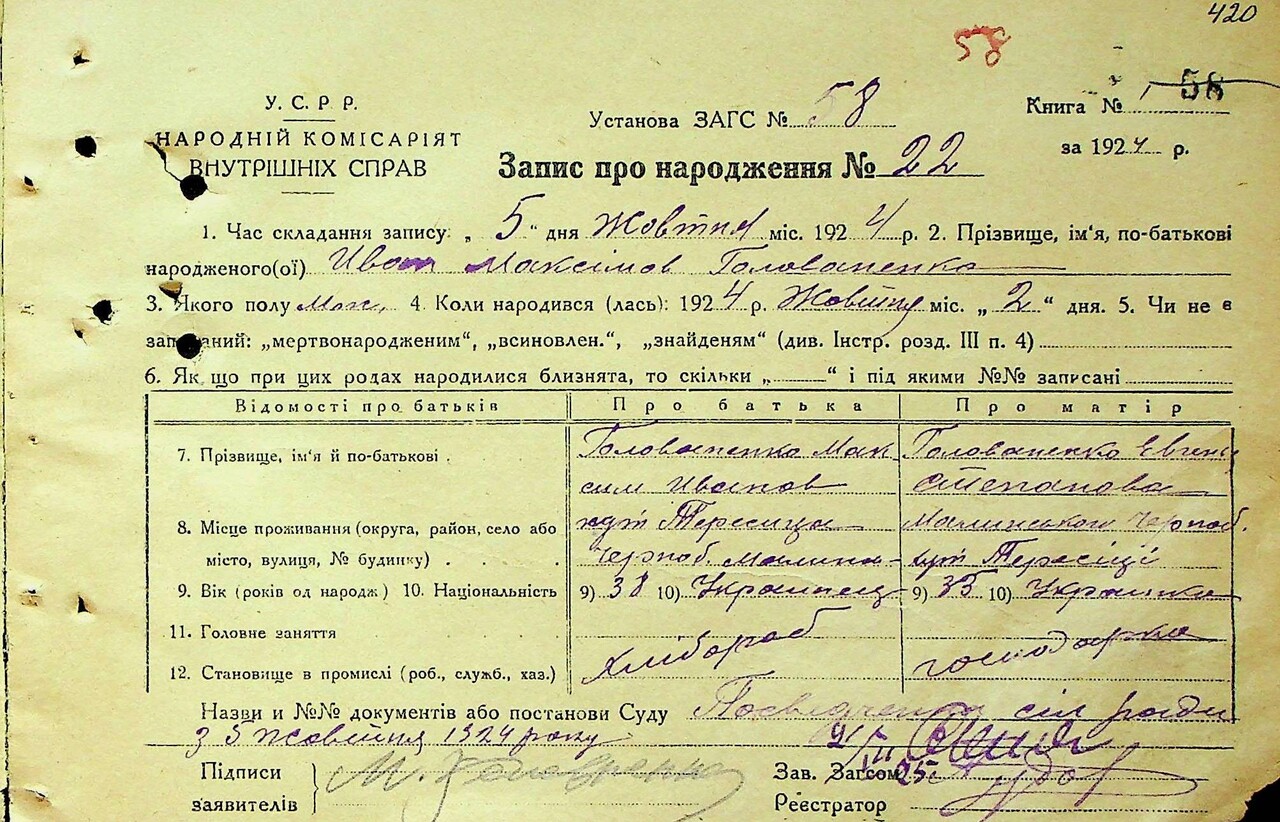 420
58
У. С. Р. Р.
НАРОДНІЙ КОМІСАРІЯТ
ВНУТРІШНІХ СПРАВ
Установа ЗАГС № 58
Книга № 58
за 1924 р.
Запис про народження № 22
1. Час складання запису: „ 5 " дня Жовтня міс. 1924 р. 2. Прізвище, ім'я, по-батькові
народженого(ої) Иван Максімов Голованенко
3. Якого полу Муж. 4. Коли народився (лась): 1924 р. Жовтня міс. „ 2 " дня. 5. Чи не в
запи аний: „мертвонародженим", „всиновлен.", „знайденям" (див. Інстр. розд. III п. 4)
6. Як що при цих родах народилися близнята, то скільки „ " і під якими №№ записані
Відомості про батьків Про батька Про матір
7. Прізвище, ім'я й по-батькові . Голованенко Мак Голованенко Евген
сим Иванов Степанова
8. Місце проживання (округа, район, село або хут Тересица Малинського Черноб.
місто, вулиця, № будинку) . . . Черноб. Малина- хут Тересіці
9. Вік (років од народж) 10. Національність 9) 38 10) Украинец 9) 33 10) Украинка
11. Головне заняття Хлібороб господарка
12. Становище в промислі (роб., служб., хаз.)
Назви и №№ документів або постанови Суду Посвідчення сіл ради
з 5 жовтня 1924 року
Підписи
заявителів
Зав. Загсом
Реєстратор